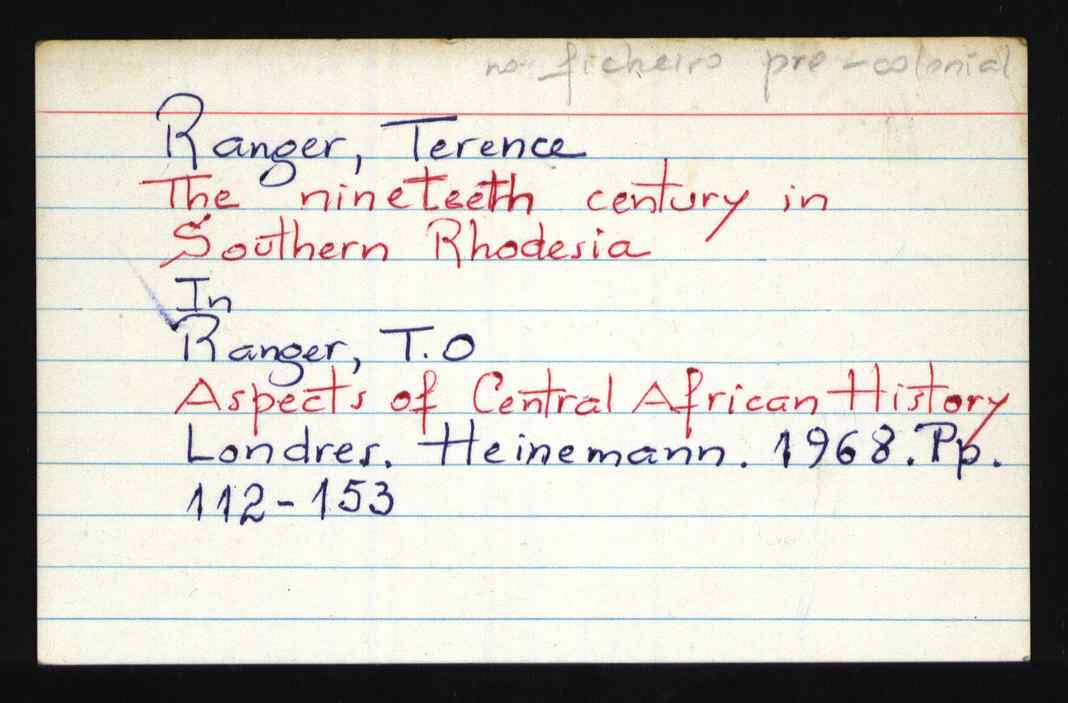 no ficheiro pre-colonial
Ranger, Terence
The nineteeth century in
Southern Rhodesia
In
Ranger, T.O
Aspects of Central African History
Londres. Heinemann. 1968. Pp.
112-153